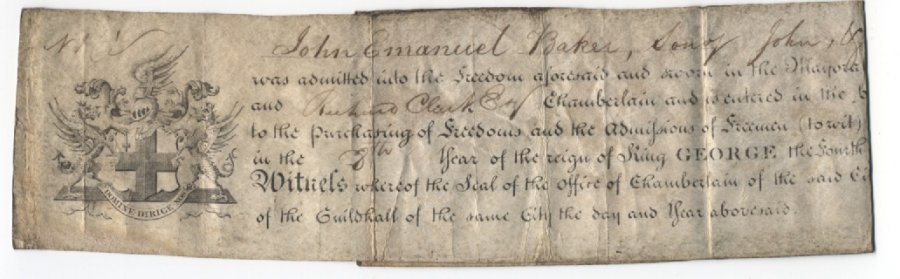 John Emanuel Baker, Son of John,
was admitted into the Freedom aforesaid and sworn in the Mayoral
and Richard Clark Esq Chamberlain and is entered in the
to the purchasing of Freedoms and the Admissions of Freemen (to wit)
in the 8th Year of the reign of King GEORGE the Fourth
Witness whereof the Seal of the office of Chamberlain of the said
of the Guildhall of the same City the day and Year abovesaid.
DOMINE DIRIGE NOS